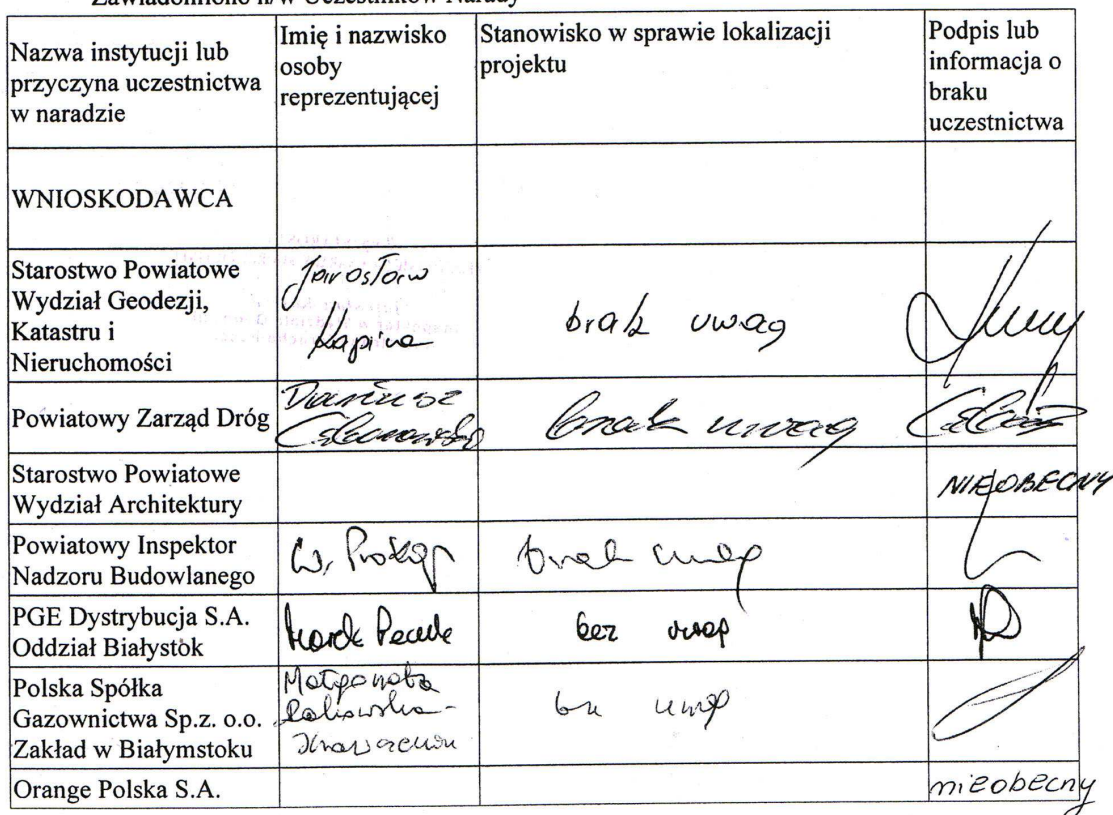 Zawiadomiono n/w Uczestników Narady
Nazwa instytucji lub
przyczyna uczestnictwa
w naradzie
Imię i nazwisko
osoby
reprezentującej
Stanowisko w sprawie lokalizacji
projektu
Podpis lub
informacja o
braku
uczestnictwa
WNIOSKODAWCA
Starostwo Powiatowe
Wydział Geodezji,
Katastru i
Nieruchomości
Jarosław
Łapina
brak uwag
Powiatowy Zarząd Dróg
Dariusz
brak uwag
Starostwo Powiatowe
Wydział Architektury
NIEOBECNY
Powiatowy Inspektor
Nadzoru Budowlanego
W. Prokop
brak uwag
PGE Dystrybucja S.A.
Oddział Białystok
Marek
bez uwag
Polska Spółka
Gazownictwa Sp.z. o.o.
Zakład w Białymstoku
Małgorzata
uwag
Orange Polska S.A.
nieobecny